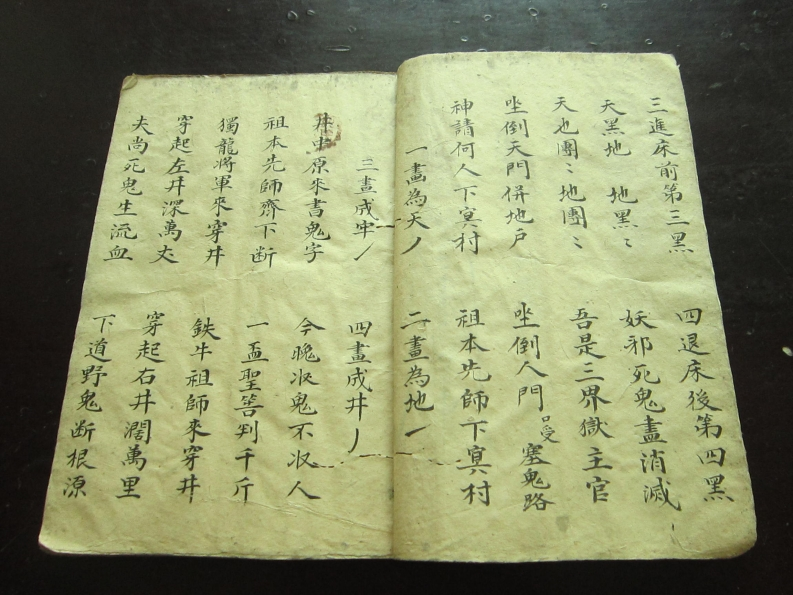 三進床前第三黑 四退床後第四黑
天黑地 地黑〻 妖邪死鬼盡消滅
天也團〻地團〻 吾是三界獄主官
坐倒天門併地戶 坐倒人門口受塞鬼路
神請何人下冥村 祖本先師下冥村
一畫為天丿 二畫為地一
三畫成牢丿 四畫成井丿
井中原來書鬼字 今晚収鬼不収人
祖本先師齊下断 一盃聖筶判千斤
獨龍將軍來穿井 鉄牛祖師來穿井
穿起左井深萬丈 穿起右井濶萬里
夫尚死鬼生流血 下道野鬼断根源